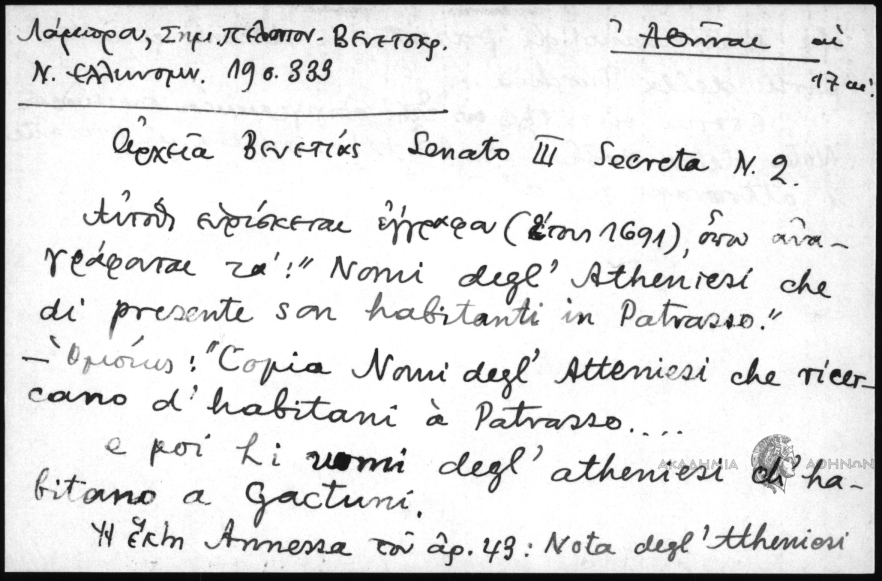 Λάμπρου, Σημ. Πελοπον. Βενετοκρ.
Ἀθῆναι αἱ
Ν. Ελληνομν. 19 σ. 333
17 αἰ.
Ἀρχεῖα Βενετίας Senato III Secreta N. 2.
Αὐτόθι εὑρίσκεται ἔγγραφον (ἔτους 1691), ὅπου ἀνα-
γράφονται τά: "Nomi degl' Atheniesi che
di presente son habitanti in Patrasso."
- Ὁμοίως: "Copia Nomi degl' Atteniesi che ricer-
cano d' habitani à Patrasso....
e poi li nomi degl' atheniesi ch' ha-
bitano a Gactuni.
ΑΚΑΔΗΜΙΑ ΑΘΗΝΩΝ
Ἡ ἕκτη Annessa τοῦ ἀρ. 43: Nota degl' Atheniesi